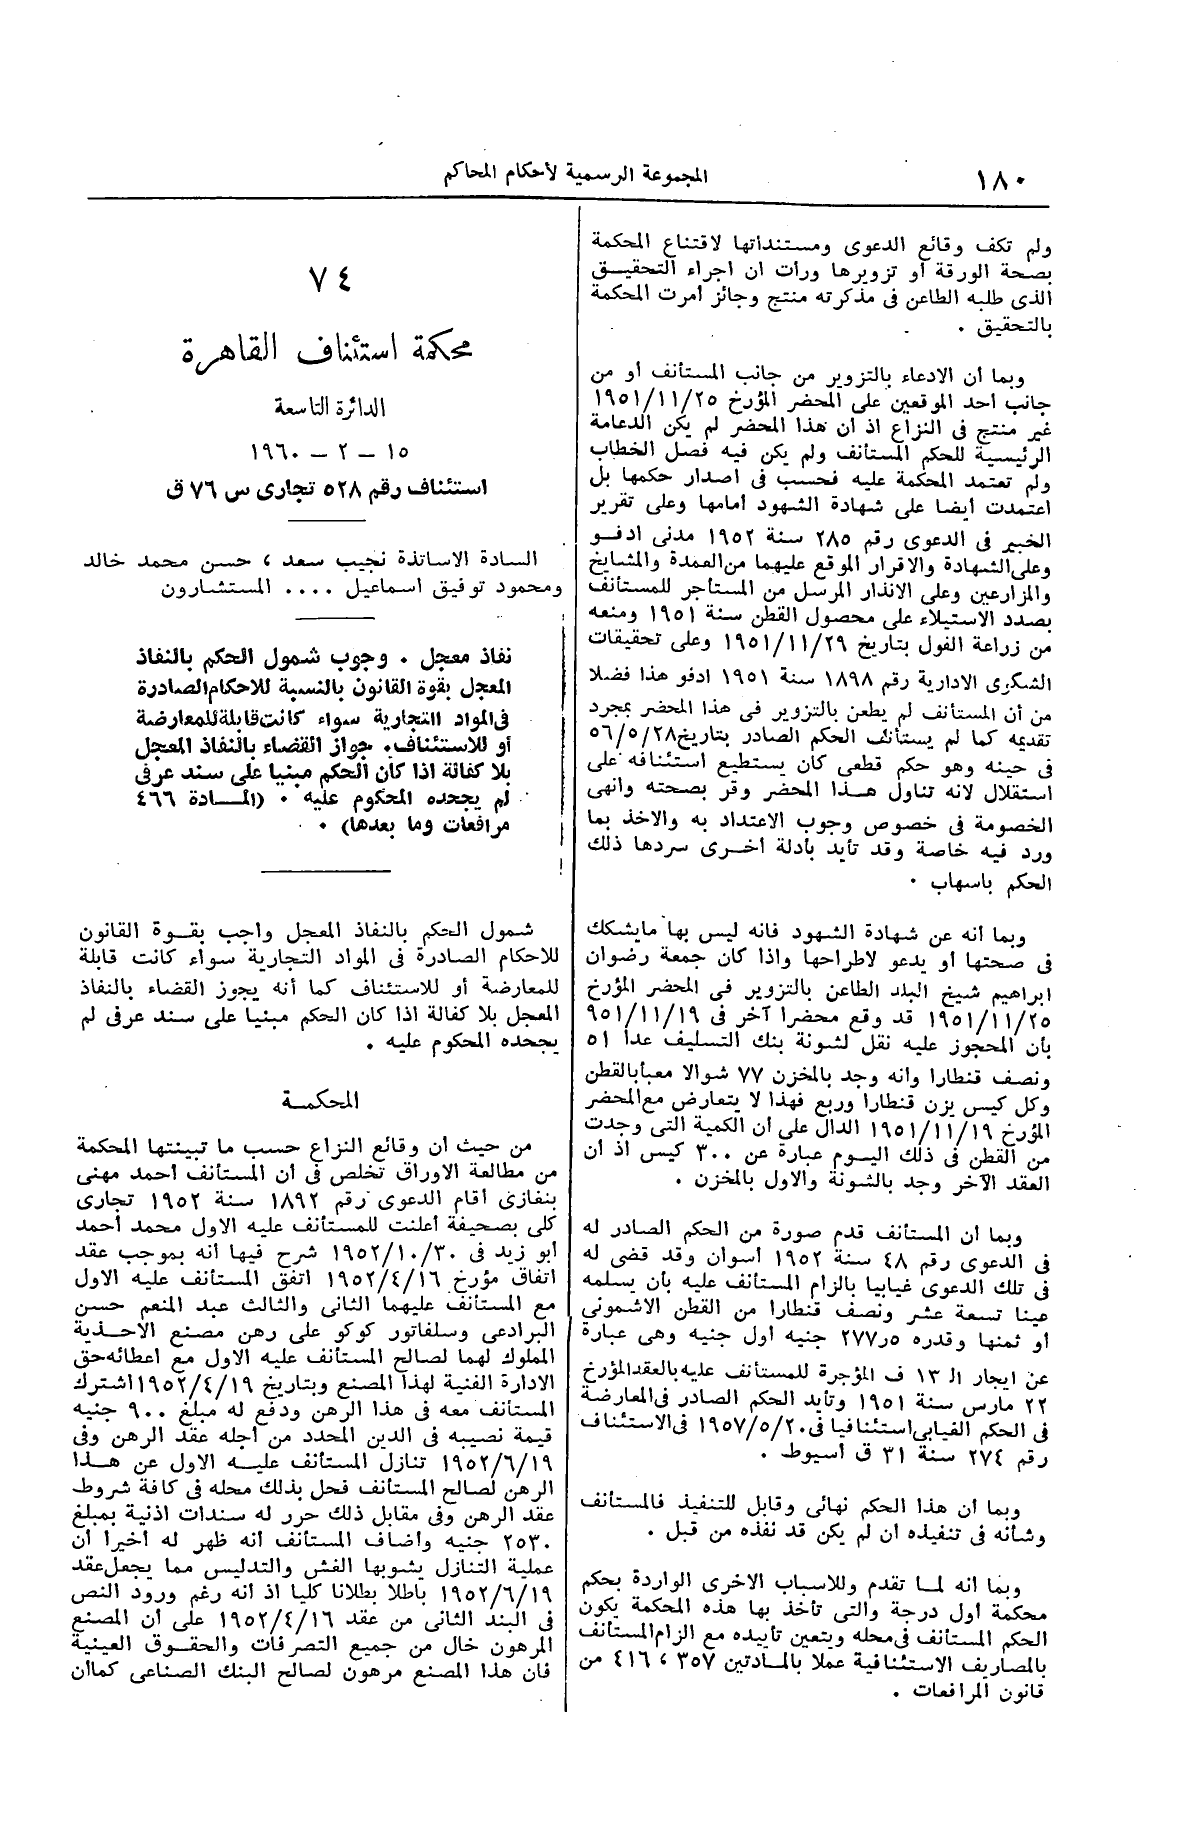 ١٨٠
المجموعة الرسمية لأحكام المحاكم
ولم تكف وقائع الدعوى ومستنداتها لاقتناع المحكمة
بصحة الورقة أو تزويرها ورأت ان اجراء التحقيق
الذى طلبه الطاعن فى مذكرته منتج وجائز أمرت المحكمة
بالتحقيق .
وبما أن الادعاء بالتزوير من جانب المستأنف أو من
جانب أحد الموقعين على المحضر المؤرخ ١٩٥١/١١/٢٥
غير منتج فى النزاع اذ أن هذا المحضر لم يكن الدعامة
الرئيسية للحكم المستأنف ولم يكن فيه فصل الخطاب
ولم تعتمد المحكمة عليه فحسب فى اصدار حكمها بل
اعتمدت أيضا على شهادة الشهود أمامها وعلى تقرير
الخبير فى الدعوى رقم ٢٨٥ سنة ١٩٥٢ مدنى ادفو
وعلى الشهادة والاقرار الموقع عليهما من العمدة والمشايخ
والمزارعين وعلى الانذار المرسل من المستأجر للمستأنف
بصدد الاستيلاء على محصول القطن سنة ١٩٥١ ومنعه
من زراعة الفول بتاريخ ١٩٥١/١١/٢٩ وعلى تحقيقات
الشكوى الادارية رقم ١٨٩٨ سنة ١٩٥١ ادفو هذا فضلا
من أن المستأنف لم يطعن بالتزوير فى هذا المحضر بمجرد
تقديمه كما لم يستأنف الحكم الصادر بتاريخ ٥٦/٥/٢٨
فى حينه وهو حكم قطعى كان يستطيع استئنافه على
استقلال لانه تناول هذا المحضر وقر بصحته وانهى
الخصومة فى خصوص وجوب الاعتداد به والاخذ بما
ورد فيه خاصة وقد تأيد بأدلة أخرى سردها ذلك
الحكم باسهاب .
وبما أنه عن شهادة الشهود فانه ليس بها مايشكك
فى صحتها أو يدعو لاطراحها واذا كان جمعة رضوان
ابراهيم شيخ البلد الطاعن بالتزوير فى المحضر المؤرخ
١٩٥١/١١/٢٥ قد وقع محضرا آخر فى ٩٥١/١١/١٩
بأن المحجوز عليه نقل لشونة بنك التسليف عدا ٥١
ونصف قنطارا وأنه وجد بالمخزن ٧٧ شوالا معبأ بالقطن
وكل كيس يزن قنطارا وربع فهذا لا يتعارض مع المحضر
المؤرخ ١٩٥١/١١/١٩ الدال على أن الكمية التى وجدت
من القطن فى ذلك اليوم عبارة عن ٣٠٠ كيس اذ أن
العقد الآخر وجد بالشونة والاول بالمخزن .
وبما أن المستأنف قدم صورة من الحكم الصادر له
فى الدعوى رقم ٤٨ سنة ١٩٥٢ أسوان وقد قضى له
فى تلك الدعوى غيابيا بالزام المستأنف عليه بأن يسلمه
عينا تسعة عشر ونصف قنطارا من القطن الاشمونى
أو ثمنها وقدره ٢٧٧ر٥ جنيه أول جنيه وهى عبارة
عن ايجار الـ ١٣ ف المؤجرة للمستأنف عليه بالعقد المؤرخ
٢٢ مارس سنة ١٩٥١ وتأيد الحكم الصادر فى المعارضة
فى الحكم الغيابى استئنافيا فى ١٩٥٧/٥/٢٠ فى الاستئناف
رقم ٢٧٤ سنة ٣١ ق أسيوط .
وبما أن هذا الحكم نهائى وقابل للتنفيذ فالمستأنف
وشأنه فى تنفيذه ان لم يكن قد نفذه من قبل .
وبما أنه لما تقدم وللاسباب الاخرى الواردة بحكم
محكمة أول درجة والتى تأخذ بها هذه المحكمة يكون
الحكم المستأنف فى محله ويتعين تأييده مع الزام المستأنف
بالمصاريف الاستئنافية عملا بالمادتين ٣٥٧ ، ٤١٦ من
قانون المرافعات .
٧٤
محكمة استئناف القاهرة
الدائرة التاسعة
١٥ – ٢ – ١٩٦٠
استئناف رقم ٥٢٨ تجارى س ٧٦ ق
السادة الاساتذة نجيب سعد ، حسن محمد خالد
ومحمود توفيق اسماعيل .... المستشارون
نفاذ معجل . وجوب شمول الحكم بالنفاذ
المعجل بقوة القانون بالنسبة للاحكام الصادرة
فى المواد التجارية سواء كانت قابلة للمعارضة
أو للاستئناف. جواز القضاء بالنفاذ المعجل
بلا كفالة اذا كان الحكم مبنيا على سند عرفى
لم يجحده المحكوم عليه . (المادة ٤٦٦
مرافعات وما بعدها) .
شمول الحكم بالنفاذ المعجل واجب بقوة القانون
للاحكام الصادرة فى المواد التجارية سواء كانت قابلة
للمعارضة أو للاستئناف كما أنه يجوز القضاء بالنفاذ
المعجل بلا كفالة اذا كان الحكم مبنيا على سند عرفى لم
يجحده المحكوم عليه .
المحكمة
من حيث أن وقائع النزاع حسب ما تبينتها المحكمة
من مطالعة الاوراق تخلص فى أن المستأنف أحمد مهنى
بنفازى أقام الدعوى رقم ١٨٩٢ سنة ١٩٥٢ تجارى
كلى بصحيفة أعلنت للمستأنف عليه الاول محمد أحمد
أبو زيد فى ١٩٥٢/١٠/٣٠ شرح فيها أنه بموجب عقد
اتفاق مؤرخ ١٩٥٢/٤/١٦ اتفق المستأنف عليه الاول
مع المستأنف عليهما الثانى والثالث عبد المنعم حسن
البرادعى وسلفاتور كوكو على رهن مصنع الاحذية
المملوك لهما لصالح المستأنف عليه الاول مع اعطائه حق
الادارة الفنية لهذا المصنع وبتاريخ ١٩٥٢/٤/١٩ اشترك
المستأنف معه فى هذا الرهن ودفع له مبلغ ٩٠٠ جنيه
قيمة نصيبه فى الدين المحدد من أجله عقد الرهن وفى
١٩٥٢/٦/١٩ تنازل المستأنف عليه الاول عن هذا
الرهن لصالح المستأنف فحل بذلك محله فى كافة شروط
عقد الرهن وفى مقابل ذلك حرر له سندات اذنية بمبلغ
٢٥٣٠ جنيه وأضاف المستأنف أنه ظهر له أخيرا أن
عملية التنازل يشوبها الغش والتدليس مما يجعل عقد
١٩٥٢/٦/١٩ باطلا بطلانا كليا اذ أنه رغم ورود النص
فى البند الثانى من عقد ١٩٥٢/٤/١٦ على أن المصنع
المرهون خال من جميع التصرفات والحقوق العينية
فان هذا المصنع مرهون لصالح البنك الصناعى كما أن